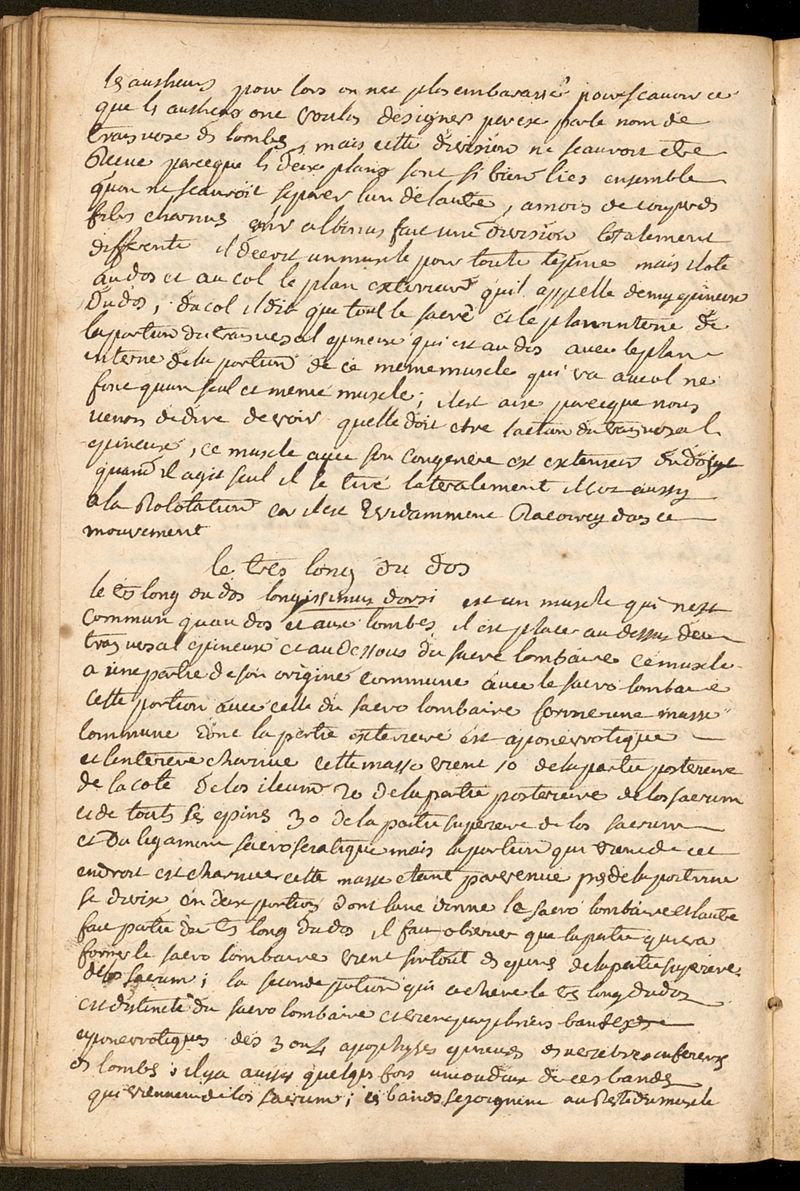 les autheurs pour lors on nest plus embarassé pour scavoir ce
que les autheurs ont voulu désigner par le nom de
transverse des lombes, mais cette division ne scauroit etre
Reçue parceque les deux plans sont si bien lies ensemble
quon ne scauroit separer lun de lautre, amois de couper des
fibres charnues, albinus fait une division totalement
differente il décrit un muscle pour toute lepine mais il ote
au dos et au col le plan exterieur quil appelle demy epineux
du dos, du col il dit que tout le sacré et le plan interne de
la portion du transversal epineux qui est au dos avec le plan
interne de la portion de ce meme muscle qui va au col ne
font quun seul et meme muscle; il est aise parceque nous
venons de dire de voir quelle doit etre laction du transversal
epineux, ce muscle avec son congenere est extenseur du dos
quand il agit seul il le tire lateralement il sert aussy
a la Rotation car il est Evidamment dans ce
mouvement
le tres long du dos
le tres long du dos longissimus dorsi est un muscle qui nest
commun quau dos et aux lombes, il est place au dessus du
transversal epineux et au dessous du sacro lombaire ce muscle
a une partie de son origine commune avec le sacro lombaire
cette portion avec celle du sacro lombaire forme une masse
commune dont la partie exterieure est aponevrotique
et linterieure charnue cette masse vient 1o de la partie posterieure
de la cote de los ileum 2o de la partie posterieure de los sacrum
et de toutes ses epines 3o de la partie superieure de los sacrum
et du ligament sacrosciatique mais la portion qui vient de cet
endroit est charnue cette masse etant parvenue
se divise en deux portions dont lune donne le sacro lombaire et lautre
fait partie du tres long du dos il faut observer que la partie qui va
former le sacro lombaire vient surtout des epines de la partie superieure
de los sacrum; la seconde portion qui acheve le tres long du dos
est distincte du sacro lombaire et vient par plusieurs bandes
aponevrotiques des 3 ou 4 apophyses epineuses des vertebres inferieures
des lombes; il y a aussy quelques fois une ou deux de ces bandes
qui viennent de los sacrum; ces bandes se joignent au Reste du muscle